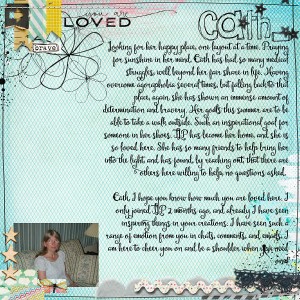 you are
LOVED
Cath
brave
Looking for her happy place, one layout at a time. Praying
for sunshine in her mind. Cath has had so many medical
struggles, well beyond her fair share in life. Having
overcome agoraphobia several times, but falling back to that
place, again she has shown an immense amount of
determination and bravery. Her goals this summer are to be
able to take a walk outside. Such an inspirational goal for
someone in her shoes. has become her home, and she is
so loved here. She has so many friends to help bring her
into the light and has found, by reaching out, that there are
others here willing to help no questions asked.
Cath, I hope you know how much you are loved here. I
only joined 2 months ago, and already I have seen
inspiring things in your creations. I have seen such a
range of emotion from you in chats, comments, and emails. I
am here to cheer you on and be a shoulder when you need
one!